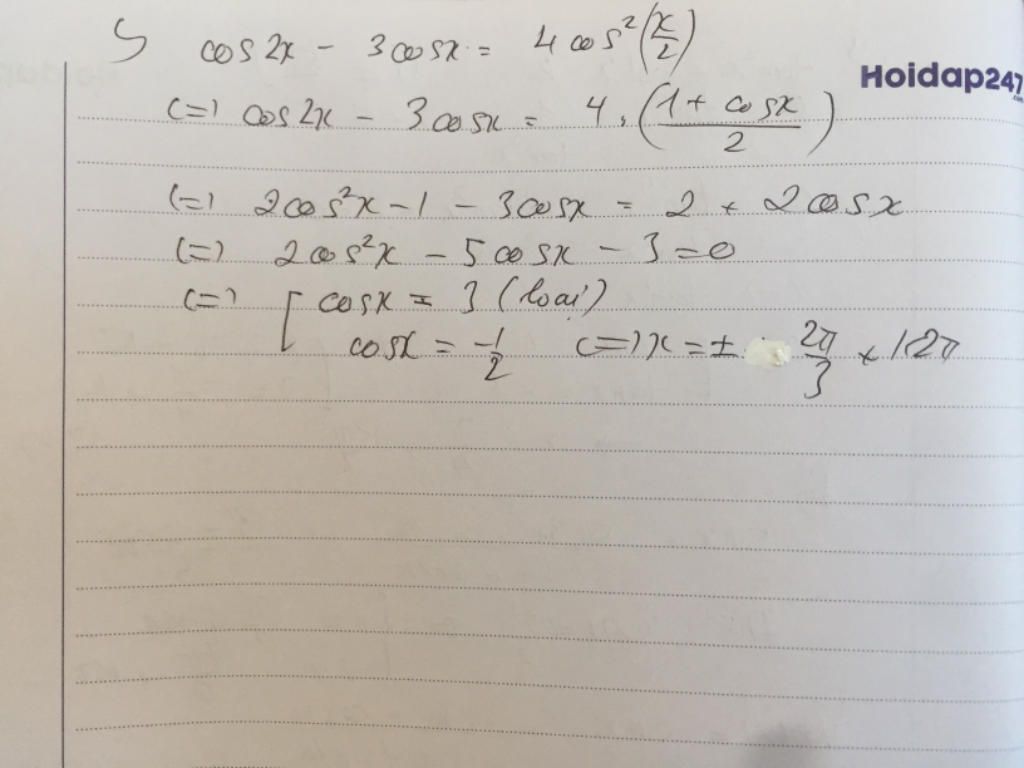 5 cos2x - 3cosx = 4 cos²(x/2)
Hoidap247
.com
(=) cos2x - 3cosx = 4.((1 + cosx)/2)
(=) 2cos²x - 1 - 3cosx = 2 + 2cosx
(=) 2cos²x - 5cosx - 3 = 0
(=) [ cosx = 3 (loại)
cosx = -1/2 (=) x = ± 2π/3 + k2π